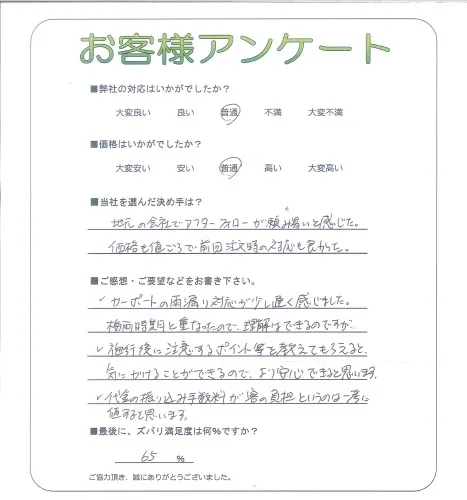 お客様アンケート
■弊社の対応はいかがでしたか？
大変良い 良い 普通 不満 大変不満
■価格はいかがでしたか？
大変安い 安い 普通 高い 大変高い
■当社を選んだ決め手は？
地元の会社でアフターフォローが頼み易いと感じた。
価格も値ごろで前回注文時の対応も良かった。
■ご感想・ご要望などをお書き下さい。
✓カーポートの雨漏り対応が少し遅く感じました。
梅雨時期と重なったので、理解はできるのですが…
✓施行後に注意するポイント等を教えてもらえると、
気にかけることができるので、より安心できると思います。
✓代金の振り込み手数料が客の負担というのは一考に
値すると思います。
■最後に、ズバリ満足度は何％ですか？
65 ％
ご協力頂き、誠にありがとうございました。